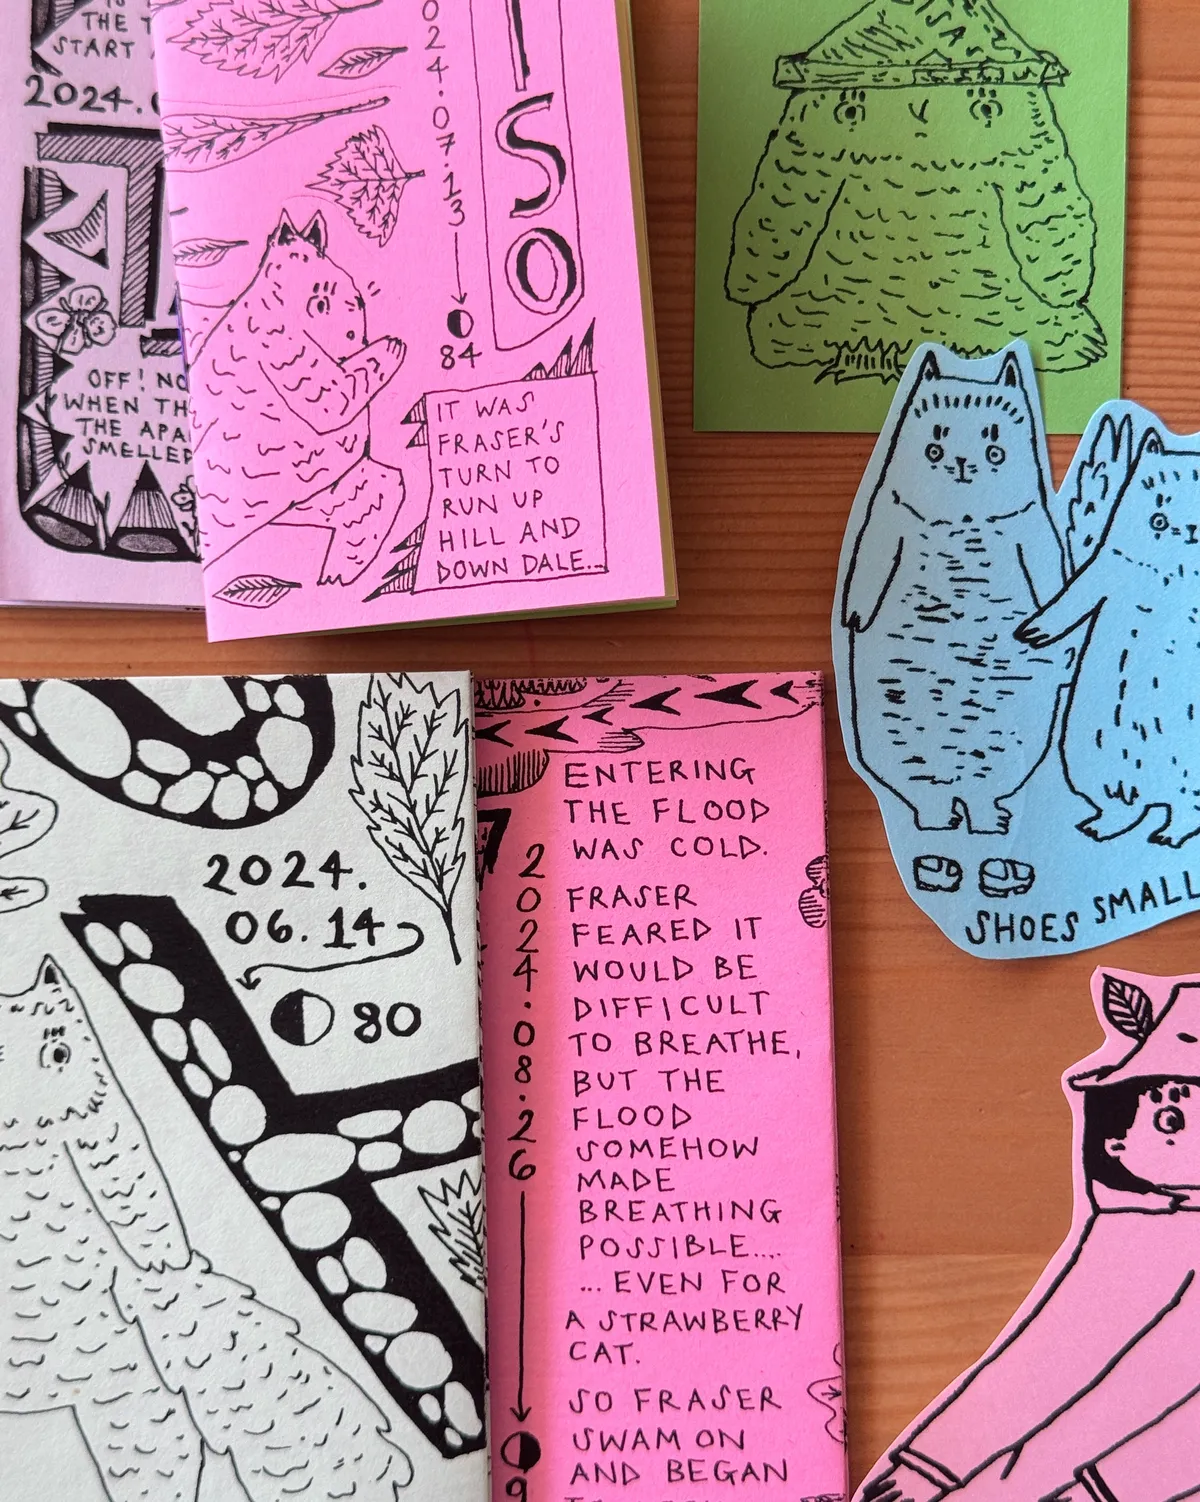 THE
START
2024.
OFF! NO
WHEN
THE
SMELLED
2024.07.13
84
ISO
IT WAS
FRASER'S
TURN TO
RUN UP
HILL AND
DOWN DALE...
2024.
06.14
80
2024.08.26
9
ENTERING
THE FLOOD
WAS COLD.
FRASER
FEARED IT
WOULD BE
DIFFICULT
TO BREATHE,
BUT THE
FLOOD
SOMEHOW
MADE
BREATHING
POSSIBLE....
... EVEN FOR
A STRAWBERRY
CAT.
SO FRASER
SWAM ON
AND BEGAN
SHOES SMALL